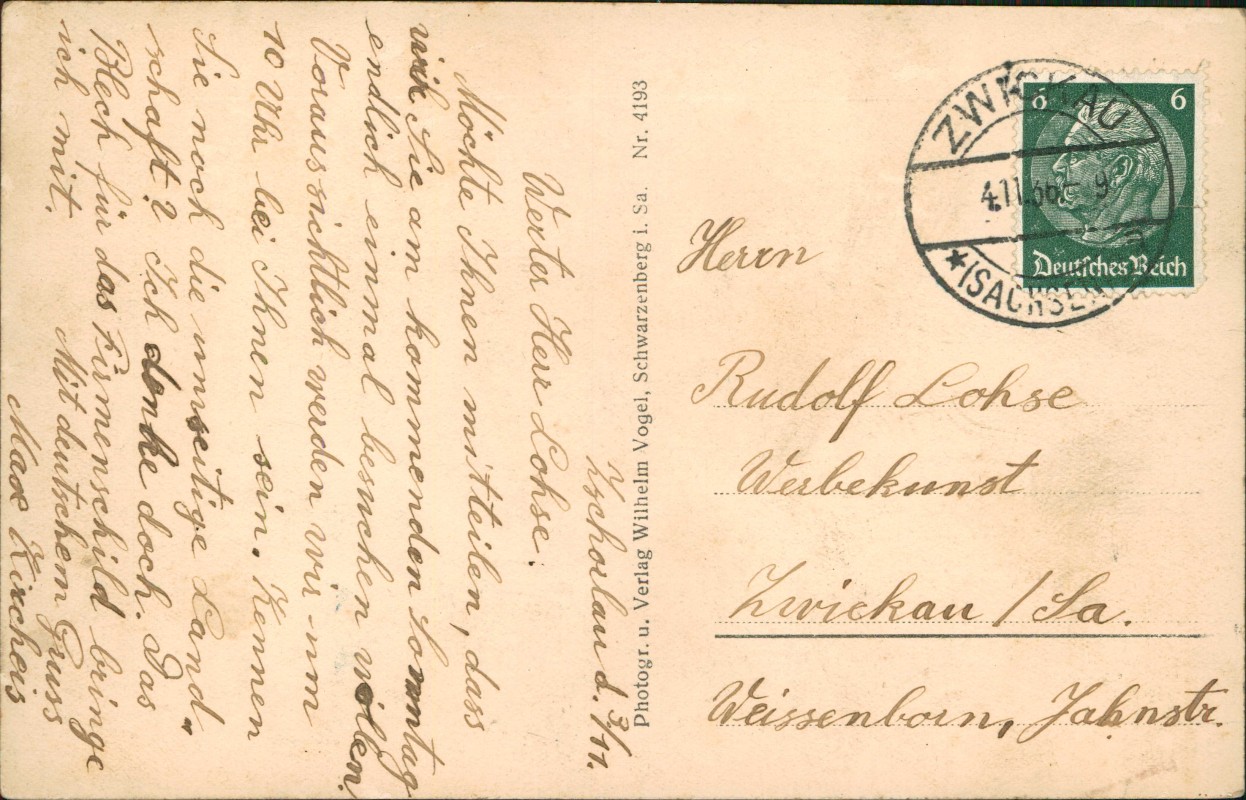 Zschorlau d. 3/11.
Werter Herr Lohse.
Möchte Ihnen mitteilen, dass
wir Sie am kommenden Sonntag
endlich einmal besuchen wollen.
Voraussichtlich werden wir um
10 Uhr bei Ihnen sein. Kennen
Sie noch die umseitige Land-
schaft? Ich denke doch. Das
Blech für das Firmenschild bringe
ich mit. Mit deutschem Gruss
Max Kircheis
Photogr. u. Verlag Wilhelm Vogel, Schwarzenberg i. Sa. Nr. 4193
ZWICKAU
4.11.36 - 9
* (SACHSEN)
6 6
Deutsches Reich
Herrn
Rudolf Lohse
Werbekunst
Zwickau / Sa.
Weissenborn, Jahnstr.